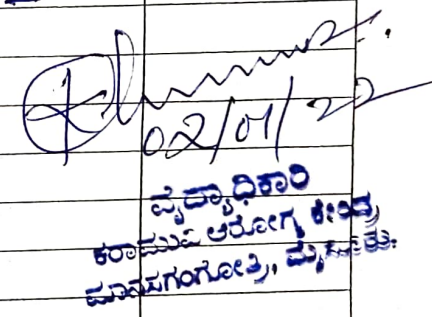 02/01/22
ವೈದ್ಯಾಧಿಕಾರಿ
ಕರಾಮುವಿ ಆರೋಗ್ಯ ಕೇಂದ್ರ
ಮಾನಸಗಂಗೋತ್ರಿ, ಮೈಸೂರು.